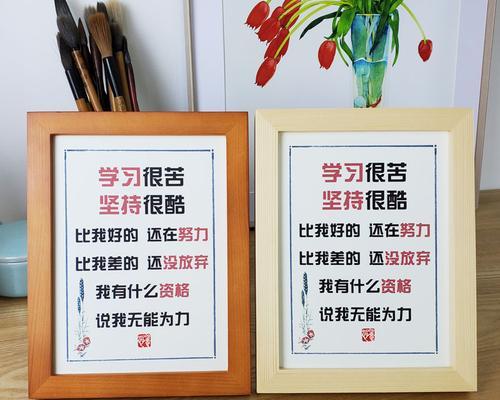 学习很苦
坚持很酷
比我好的 还在努力
比我差的 还没放弃
我有什么资格
说我无能为力
学习很苦
坚持很酷
比我好的 还在努力
比我差的 还没放弃
我有什么资格
说我无能为力